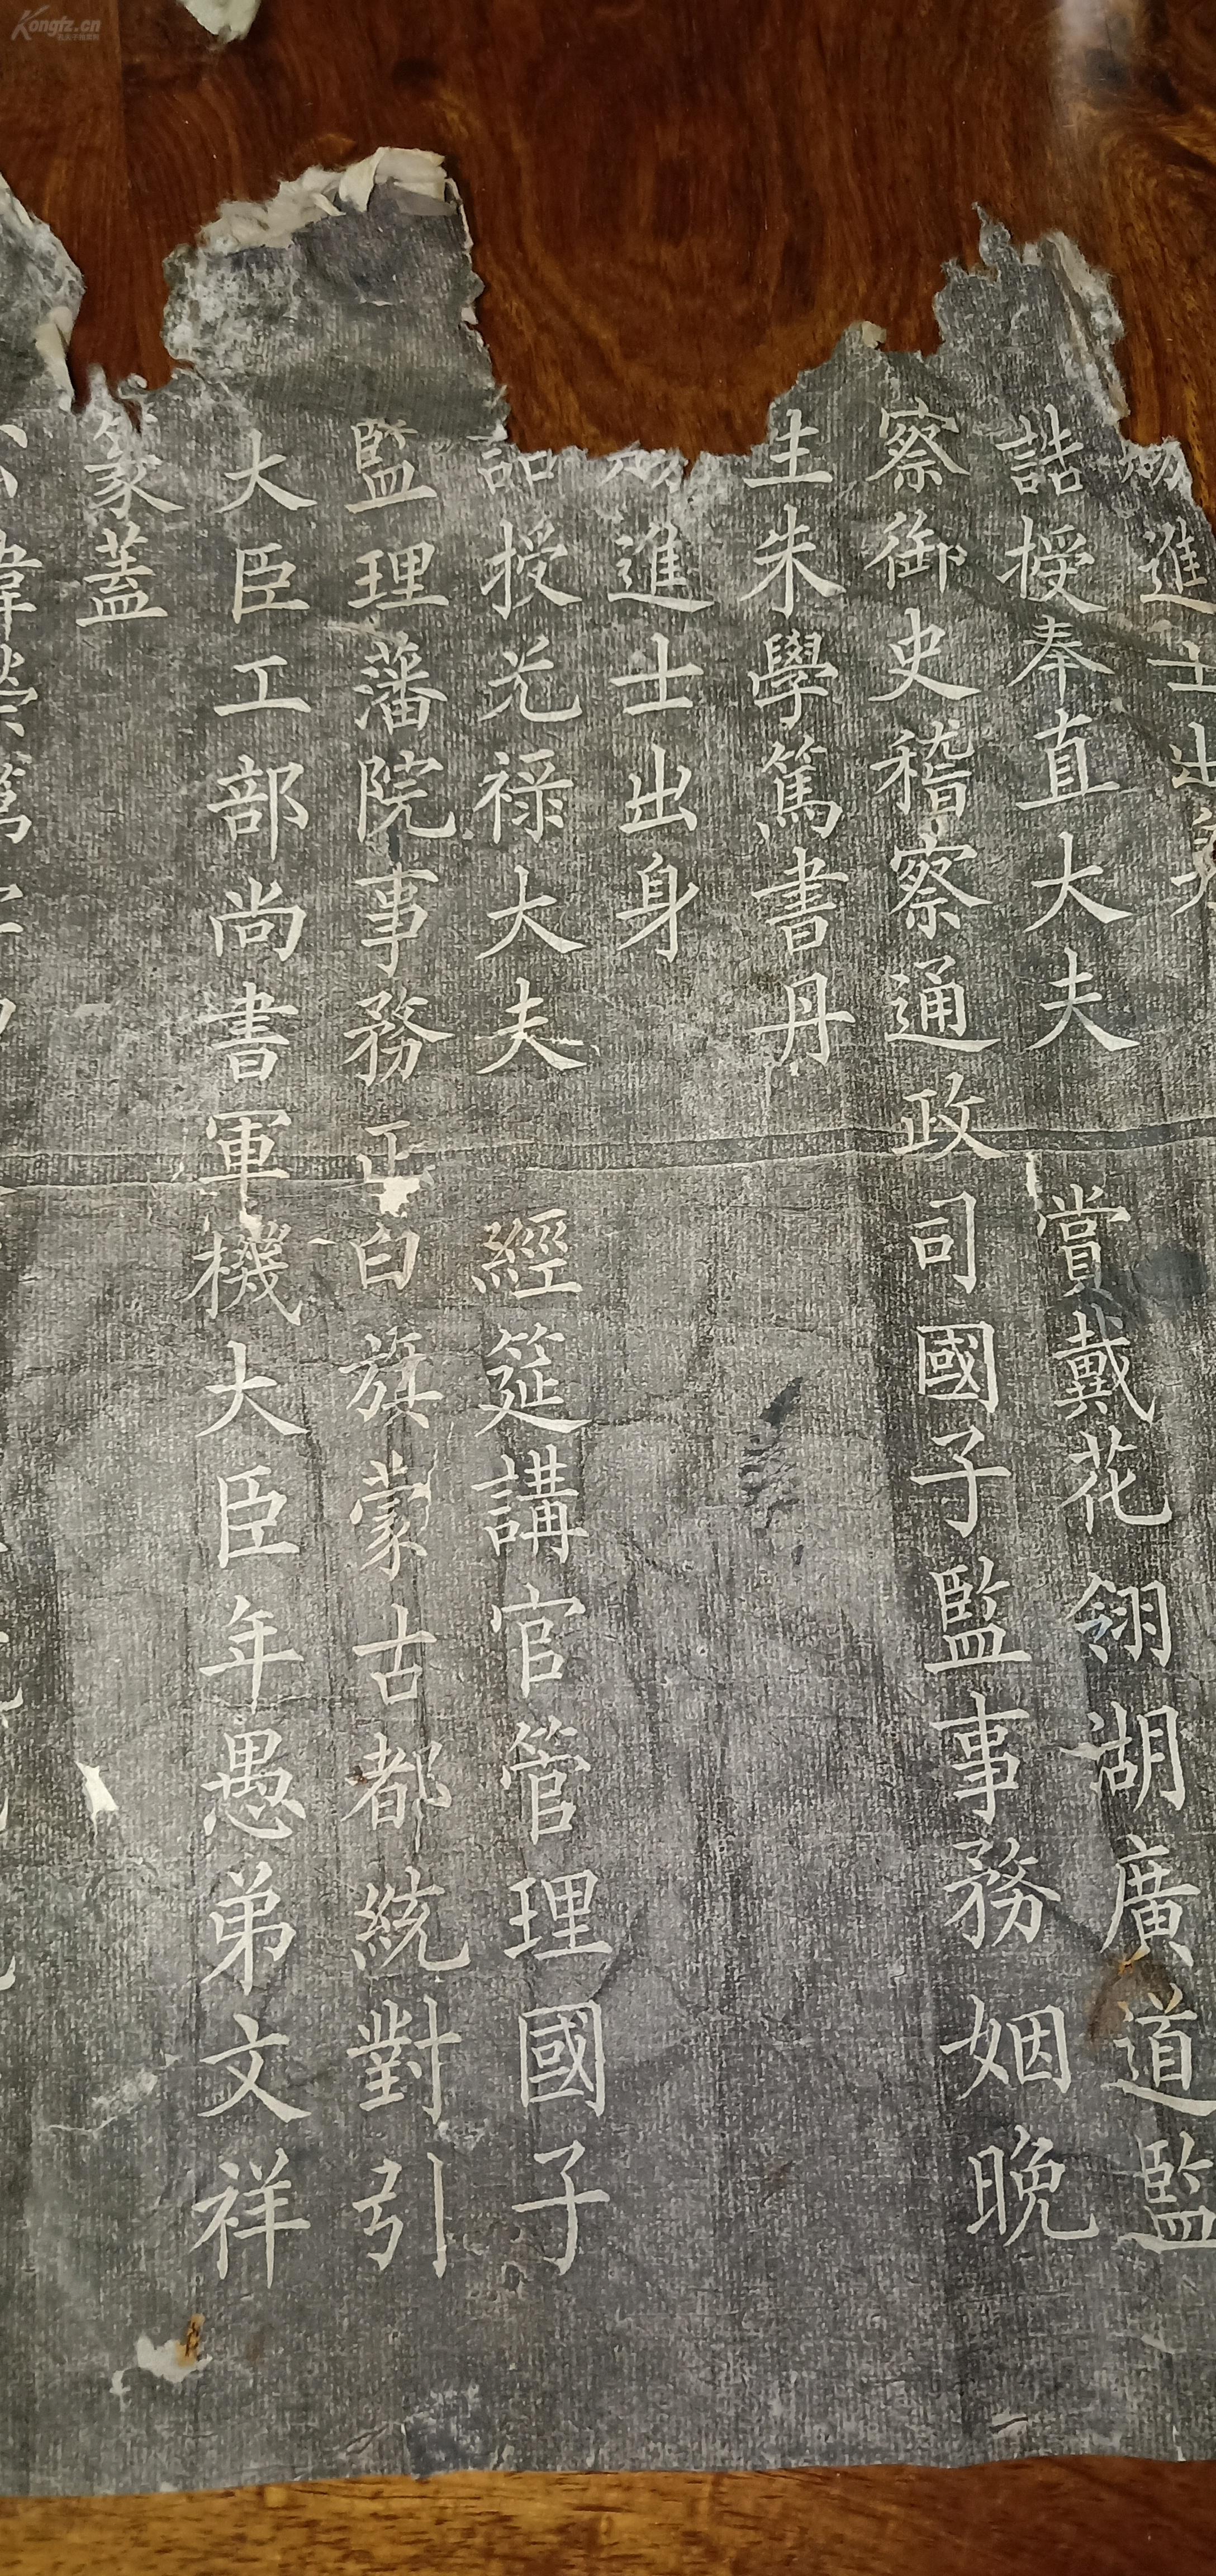 進士出
誥授奉直大夫 賞戴花翎湖廣道監
察御史稽察通政司國子監事務姻晚
生朱學篤書丹
進士出身
誥授光祿大夫 經筵講官管理國子
監理藩院事務正白旗蒙古都統對引
大臣工部尚書軍機大臣年愚弟文祥
篆蓋
Kongfz.cn